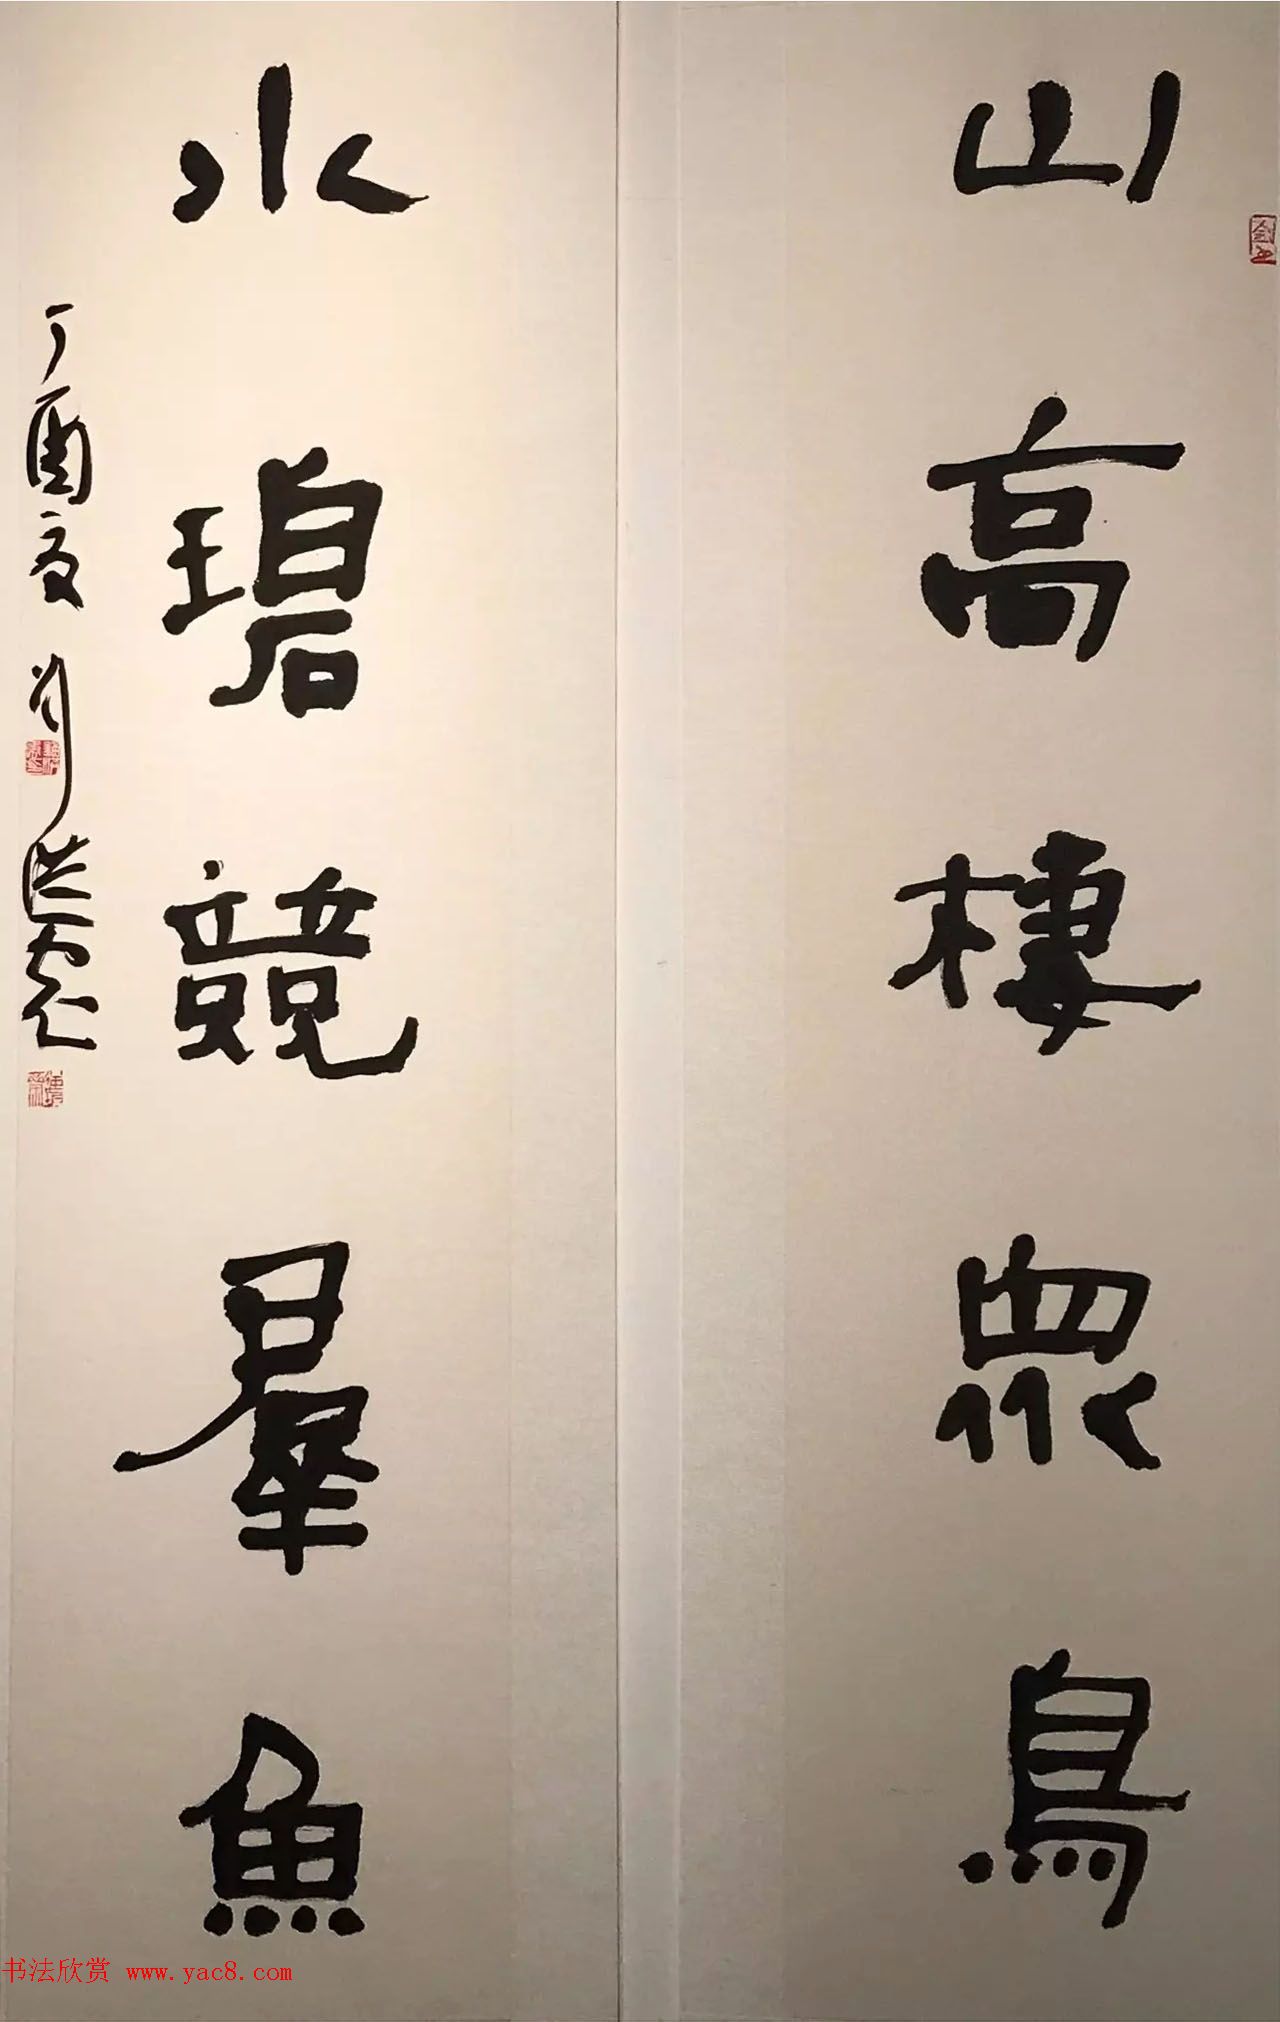 山高棲眾鳥
水碧競羣魚
丁酉夏 劉洪彪
书法欣赏 www.yac8.com